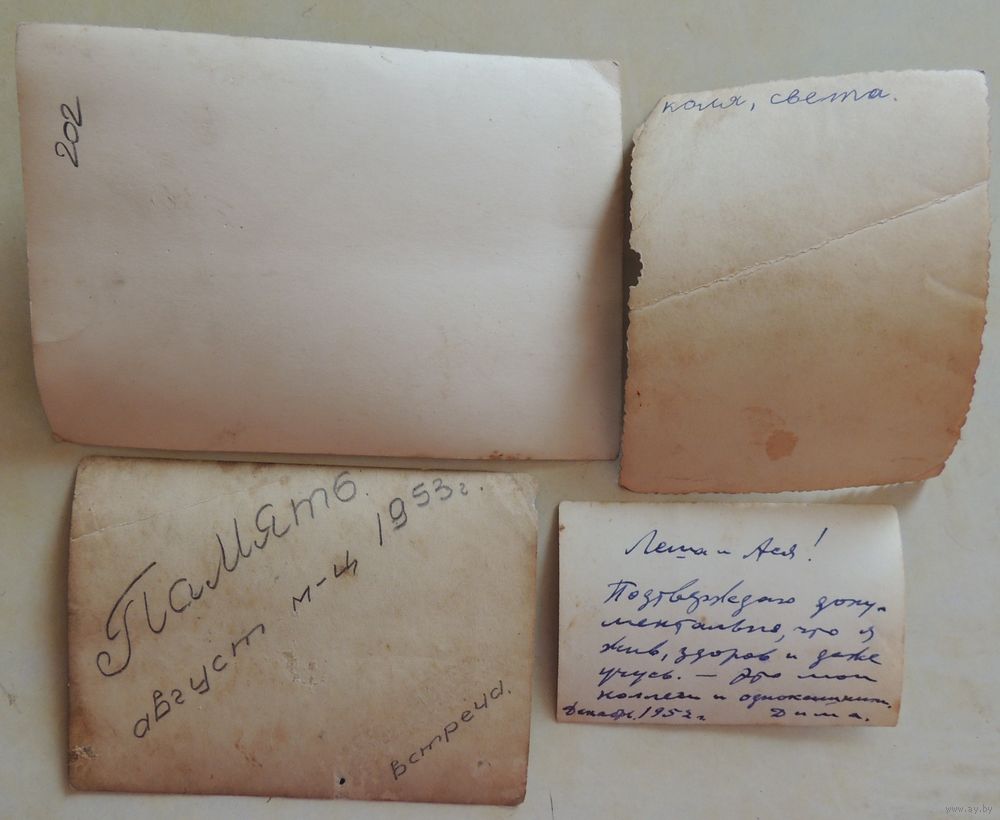 202
коля, света.
Память
август м-ц 1953 г.
встреча.
Леша и Ася!
Подтверждаю доку-
ментально, что я
жив, здоров и даже
учусь. — Это мои
коллеги и однокашники.
Декабрь 1952 г. Дима.
www.ay.by